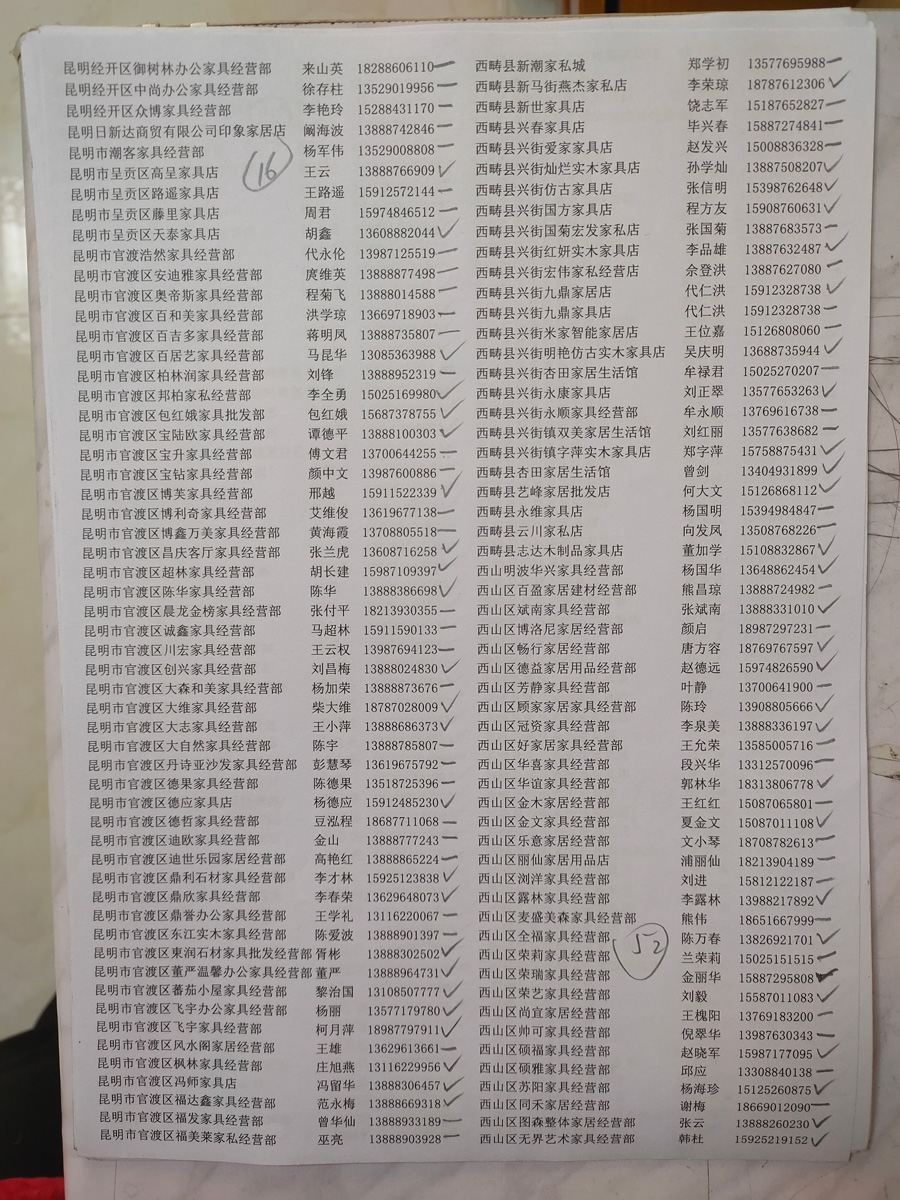 昆明经开区御树林办公家具经营部 来山英 18288606110
昆明经开区中尚办公家具经营部 徐存柱 13529019956
昆明经开区众博家具经营部 李艳玲 15288431170
昆明日新达商贸有限公司印象家居店 阚海波 13888742846
昆明市潮客家具经营部 杨军伟 13529008808
昆明市呈贡区高呈家具店 王云 13888766909
16
昆明市呈贡区路遥家具店 王路遥 15912572144
昆明市呈贡区藤里家具店 周君 15974846512
昆明市呈贡区天泰家具店 胡鑫 13608882044
昆明市官渡浩然家具经营部 代永伦 13987125519
昆明市官渡区安迪雅家具经营部 庹维英 13888877498
昆明市官渡区奥帝斯家具经营部 程菊飞 13888014588
昆明市官渡区百和美家具经营部 洪学琼 13669718903
昆明市官渡区百吉多家具经营部 蒋明凤 13888735807
昆明市官渡区百居艺家具经营部 马昆华 13085363988
昆明市官渡区柏林润家具经营部 刘锋 13888952319
昆明市官渡区邦柏家私经营部 李全勇 15025169980
昆明市官渡区包红娥家具批发部 包红娥 15687378755
昆明市官渡区宝陆欧家具经营部 谭德平 13888100303
昆明市官渡区宝升家具经营部 傅文君 13700644255
昆明市官渡区宝钻家具经营部 颜中文 13987600886
昆明市官渡区博芙家具经营部 邢越 15911522339
昆明市官渡区博利奇家具经营部 艾维俊 13619677138
昆明市官渡区博鑫万美家具经营部 黄海霞 13708805518
昆明市官渡区昌庆客厅家具经营部 张兰虎 13608716258
昆明市官渡区超林家具经营部 胡长建 15987109397
昆明市官渡区陈华家具经营部 陈华 13888386698
昆明市官渡区晨龙金榜家具经营部 张付平 18213930355
昆明市官渡区诚鑫家具经营部 马超林 15911590133
昆明市官渡区川宏家具经营部 王云权 13987694123
昆明市官渡区创兴家具经营部 刘昌梅 13888024830
昆明市官渡区大森和美家具经营部 杨加荣 13888873676
昆明市官渡区大维家具经营部 柴大维 18787028009
昆明市官渡区大志家具经营部 王小萍 13888686373
昆明市官渡区大自然家具经营部 陈宇 13888785807
昆明市官渡区丹诗亚沙发家具经营部 彭慧琴 13619675792
昆明市官渡区德果家具经营部 陈德果 13518725396
昆明市官渡区德应家具店 杨德应 15912485230
昆明市官渡区德哲家具经营部 豆泓程 18687711068
昆明市官渡区迪欧家具经营部 金山 13888777243
昆明市官渡区迪世乐园家居经营部 高艳红 13888865224
昆明市官渡区鼎利石材家具经营部 李才林 15925123838
昆明市官渡区鼎欣家具经营部 李春荣 13629648073
昆明市官渡区鼎誉办公家具经营部 王学礼 13116220067
昆明市官渡区东江实木家具经营部 陈爱波 13888901397
昆明市官渡区東润石材家具批发经营部 胥彬 13888302502
昆明市官渡区董严温馨办公家具经营部 董严 13888964731
昆明市官渡区蕃茄小屋家具经营部 黎治国 13108507777
昆明市官渡区飞宇办公家具经营部 杨丽 13577179780
昆明市官渡区飞宇家具经营部 柯月萍 18987797911
昆明市官渡区风水阁家居经营部 王雄 13629613661
昆明市官渡区枫林家具经营部 庄旭燕 13116229956
昆明市官渡区冯师家具店 冯留华 13888306457
昆明市官渡区福达鑫家具经营部 范永梅 13888669318
昆明市官渡区福发家具经营部 曾华仙 13888933189
昆明市官渡区福美莱家私经营部 巫亮 13888903928
西畴县新潮家私城 郑学初 13577695988
西畴县新马街燕杰家私店 李荣琼 18787612306
西畴县新世家具店 饶志军 15187652827
西畴县兴春家具店 毕兴春 15887274841
西畴县兴街爱家家具店 赵发兴 15008836328
西畴县兴街灿烂实木家具店 孙学灿 13887508207
西畴县兴街仿古家具店 张信明 15398762648
西畴县兴街国方家具店 程方友 15908760631
西畴县兴街国菊宏发家私店 张国菊 13887683573
西畴县兴街红妍实木家具店 李品雄 13887632487
西畴县兴街宏伟家私经营店 余登洪 13887627080
西畴县兴街九鼎家居店 代仁洪 15912328738
西畴县兴街九鼎家具店 代仁洪 15912328738
西畴县兴街米家智能家居店 王位嘉 15126808060
西畴县兴街明艳仿古实木家具店 吴庆明 13688735944
西畴县兴街杏田家居生活馆 牟禄君 15025270207
西畴县兴街永康家具店 刘正翠 13577653263
西畴县兴街永顺家具经营部 牟永顺 13769616738
西畴县兴街镇双美家居生活馆 刘红丽 13577638682
西畴县兴街镇字萍实木家具店 郑字萍 15758875431
西畴县杏田家居生活馆 曾剑 13404931899
西畴县艺峰家居批发店 何大文 15126868112
西畴县永维家具店 杨国明 15394984847
西畴县云川家私店 向发凤 13508768226
西畴县志达木制品家具店 董加学 15108832867
西山明波华兴家具经营部 杨国华 13648862454
西山区百盈家居建材经营部 熊昌琼 13888724982
西山区斌南家具经营部 张斌南 13888331010
西山区博洛尼家居经营部 颜启 18987297231
西山区畅行家居经营部 唐方容 18769767597
西山区德益家居用品经营部 赵德远 15974826590
西山区芳静家具经营部 叶静 13700641900
西山区顾家家居家具经营部 陈玲 13908805666
西山区冠资家具经营部 李泉美 13888336197
西山区好家居家具经营部 王允荣 13585005716
西山区华喜家具经营部 段兴华 13312570096
西山区华谊家具经营部 郭林华 18313806778
西山区金木家居经营部 王红红 15087065801
西山区金文家具经营部 夏金文 15087011108
西山区乐意家居经营部 文小琴 18708782613
西山区丽仙家居用品店 浦丽仙 18213904189
西山区浏洋家具经营部 刘进 15812122187
西山区露林家具经营部 李露林 13988217892
西山区麦盛美森家具经营部 熊伟 18651667999
西山区全福家具经营部 陈万春 13826921701
52
西山区荣莉家具经营部 兰荣莉 15025151515
西山区荣瑞家具经营部 金丽华 15887295808
西山区荣艺家具经营部 刘毅 15587011083
西山区尚宜家居经营部 王槐阳 13769183200
西山区帅可家具经营部 倪翠华 13987630343
西山区硕福家具经营部 赵晓军 15987177095
西山区硕雅家具经营部 邱应 13308840138
西山区苏阳家具经营部 杨海珍 15125260875
西山区同禾家居经营部 谢梅 18669012090
西山区图森整体家居经营部 张云 13888260230
西山区无界艺术家具经营部 韩杜 15925219152